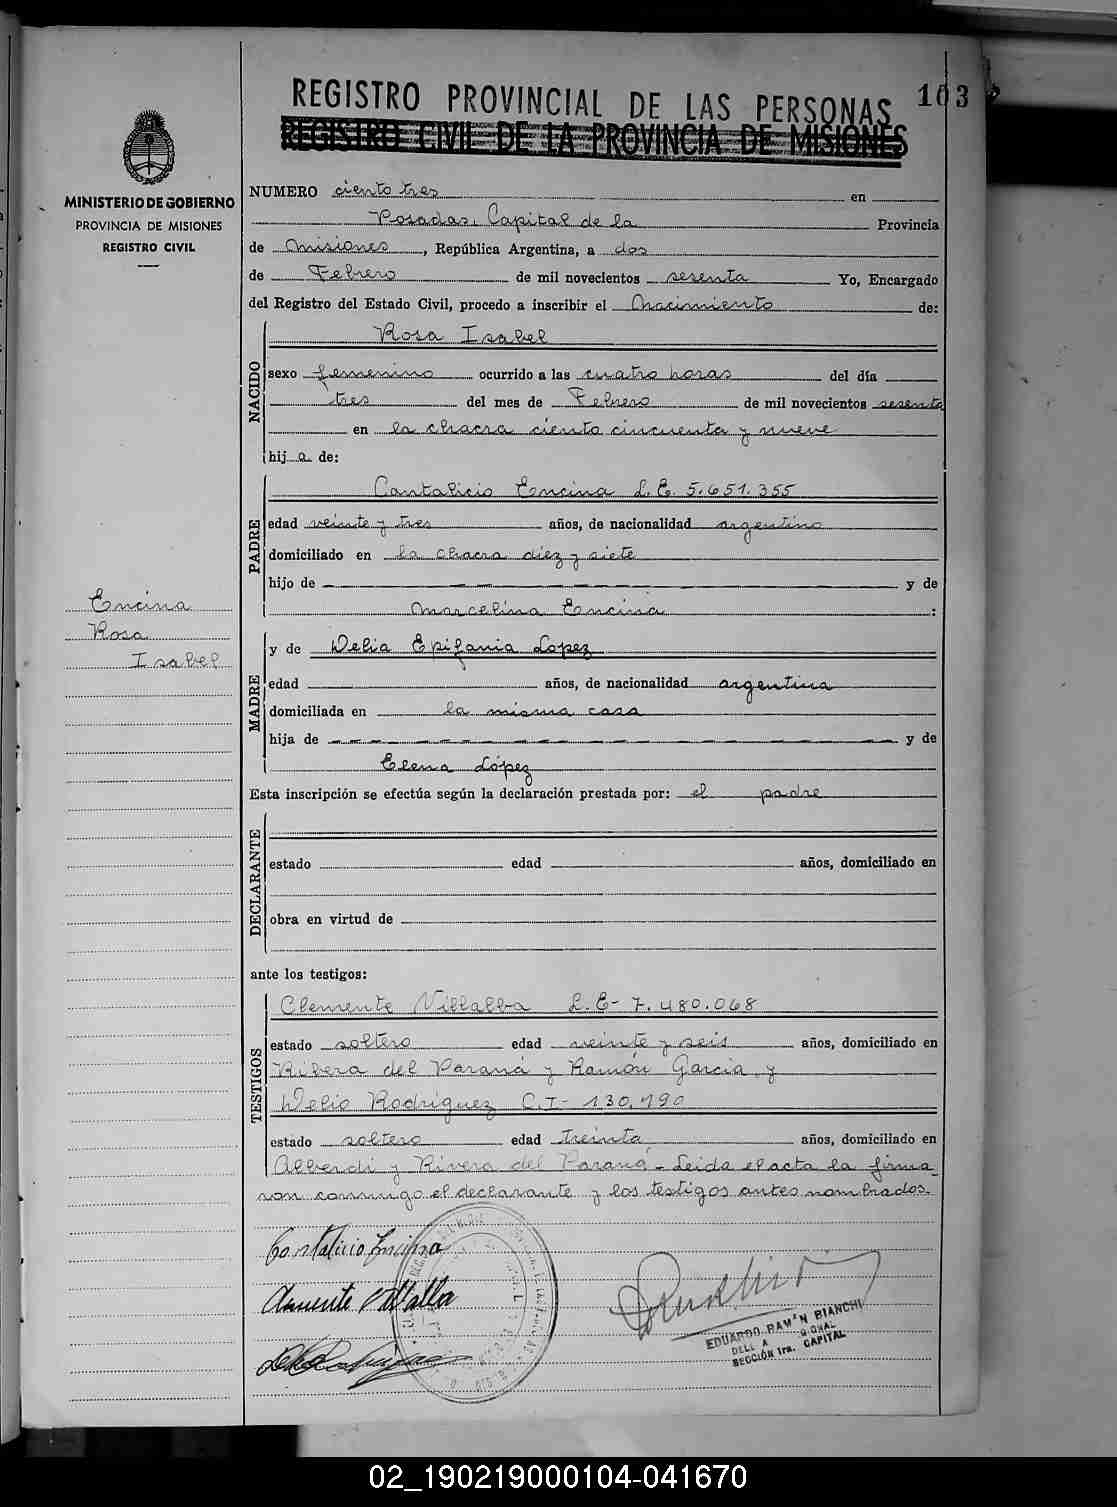 REGISTRO PROVINCIAL DE LAS PERSONAS 103
REGISTRO CIVIL DE LA PROVINCIA DE MISIONES
MINISTERIO DE GOBIERNO
PROVINCIA DE MISIONES
REGISTRO CIVIL
NUMERO ciento tres en
Posadas, Capital de la Provincia
de Misiones, República Argentina, a dos
de Febrero de mil novecientos sesenta Yo, Encargado
del Registro del Estado Civil, procedo a inscribir el Nacimiento de:
NACIDO
Rosa Isabel
sexo femenino ocurrido a las cuatro horas del día
tres del mes de Febrero de mil novecientos sesenta
en la chacra ciento cincuenta y nueve
hija de:
PADRE
Cantalicio Encina L.E. 5.651.355
edad veinte y tres años, de nacionalidad argentino
domiciliado en la chacra diez y siete
hijo de y de
Marcelina Encina :
Encina
Rosa
Isabel
MADRE
y de Delia Epifania Lopez
edad años, de nacionalidad argentina
domiciliada en la misma casa
hija de y de
Elena López
Esta inscripción se efectúa según la declaración prestada por: el padre
DECLARANTE
estado edad años, domiciliado en
obra en virtud de
ante los testigos:
TESTIGOS
Clemente Villalba L.E- 7.480.068
estado soltero edad veinte y seis años, domiciliado en
Ribera del Paraná y Ramón García, y
Delio Rodríguez C.I- 130.790
estado soltero edad treinta años, domiciliado en
Alberdi y Rivera del Paraná - Leida el acta la firma
ron conmigo el declarante y los testigos antes nombrados.
Cantalicio Encina
Clemente Villalba
EDUARDO RAMON BIANCHI
SECCIÓN 1ra. CAPITAL
02_190219000104-041670